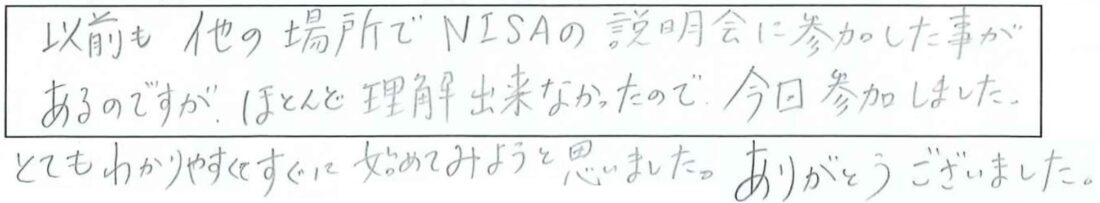 以前も 他の場所でNISAの説明会に参加した事が
あるのですが、ほとんど理解出来なかったので、今回参加しました。
とてもわかりやすくてすぐに始めてみようと思いました。ありがとうございました。